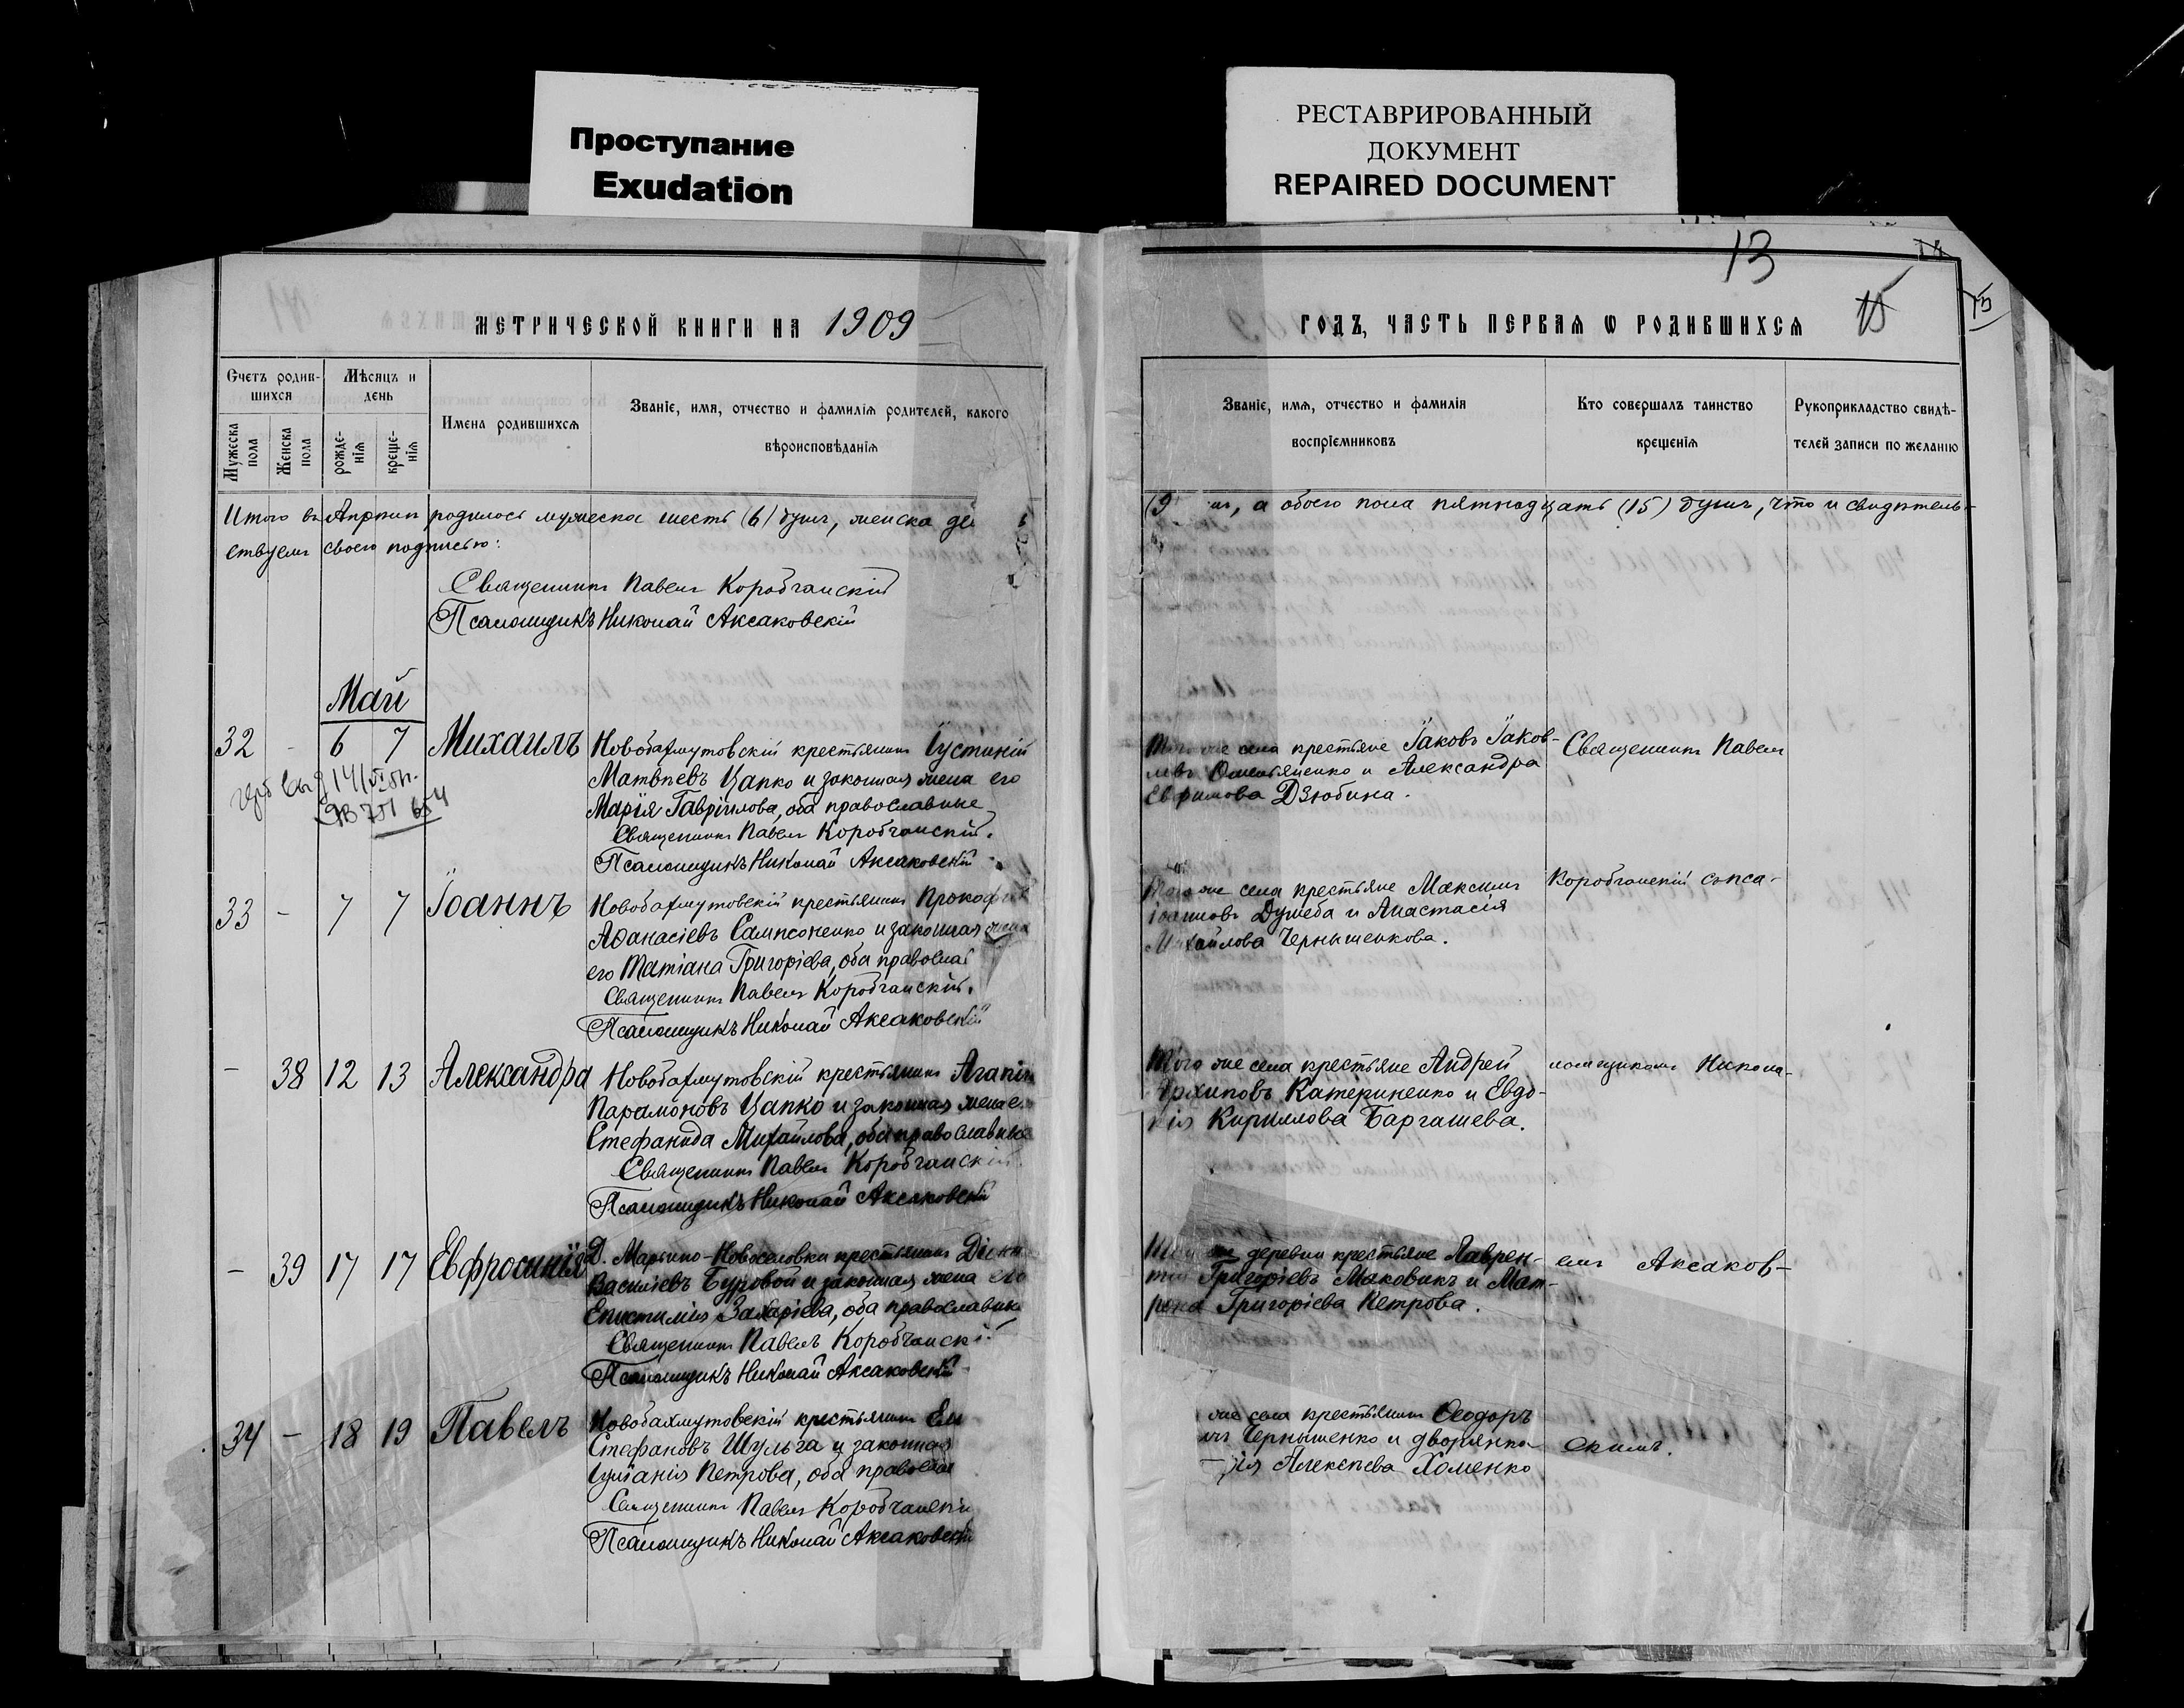 Проступание
Exudation
РЕСТАВРИРОВАННЫЙ
ДОКУМЕНТ
REPAIRED DOCUMENT
МЕТРИЧЕСКОЙ КНИГИ НА 1909
Счетъ родив-
шихся
Мѣсяцъ и
день
Мужеска
пола
Женска
пола
рожде-
нія
креще-
нія
Имена родившихся
Званіе, имя, отчество и фамилія родителей, какого
вѣроисповѣданія
Итого въ Апрѣлѣ родилось мужеска шесть (6) душъ, женска де
ствуемъ своею подписью:
Священникъ Павелъ Коробчанскій
Псаломщикъ Николай Аксаковскій
Май
32 - 6 7 Михаилъ Новобахмутовскій крестьянинъ Іустиній
Матвѣевъ Цапко и законная жена его
Марія Гавріилова, оба православные
Священникъ Павелъ Коробчанскій.
Псаломщикъ Николай Аксаковскій
33 - 7 7 Іоаннъ Новобахмутовскій крестьянинъ Прокофій
Аѳанасіевъ Сампсоненко и законная жена
его Татіана Григоріева, оба правосла
Священникъ Павелъ Коробчанскій.
Псаломщикъ Николай Аксаковскій
- 38 12 13 Александра Новобахмутовскій крестьянинъ Агапій
Парамоновъ Цапко и законная жена е
Стефанида Михайлова, оба православные
Священникъ Павелъ Коробчанскій
Псаломщикъ Николай Аксаковскій
- 39 17 17 Евфросинія Д. Марьино-Новоселовки крестьянинъ
Василіевъ Буровой и законная жена его
Епистимія Захаріева, оба православны
Священникъ Павелъ Коробчанскі
Псаломщикъ Николай Аксаковскій
34 - 18 19 Павелъ Новобахмутовскій крестьянинъ
Стефановъ Шульга и законная
Іуліанія Петрова, оба правосла
Священникъ Павелъ Коробчанскі
Псаломщикъ Николай Аксаковскій
13
15
ГОДЪ, ЧАСТЬ ПЕРВАЯ Ѡ РОДИВШИХСЯ
Званіе, имя, отчество и фамилія
воспріемниковъ
Кто совершалъ таинство
крещенія
Рукоприкладство свидѣ-
телей записи по желанію
(9 а обоего пола пятнадцать (15) душъ, что и свидѣтель-
Того же села крестьяне Іаковъ Іаков-
левъ Омельяненко и Александра
Евфимова Дзюбина.
Священникъ Павелъ
Того же села крестьяне Максимъ
Іоанновъ Дужеба и Анастасія
Михайлова Чернышенкова.
Коробчанскій съ пса-
Того же села крестьяне Андрей
Архиповъ Катериненко и Евдо-
кія Кириллова Баргашева.
ломщикомъ Никола-
же деревни крестьяне Лаврен-
тій Григоріевъ Маковикъ и Мат-
рона Григоріева Петрова.
емъ Аксаков-
же села крестьянинъ Ѳеодоръ
Чернышенко и дворянка
Алексѣева Хоменко
скимъ.